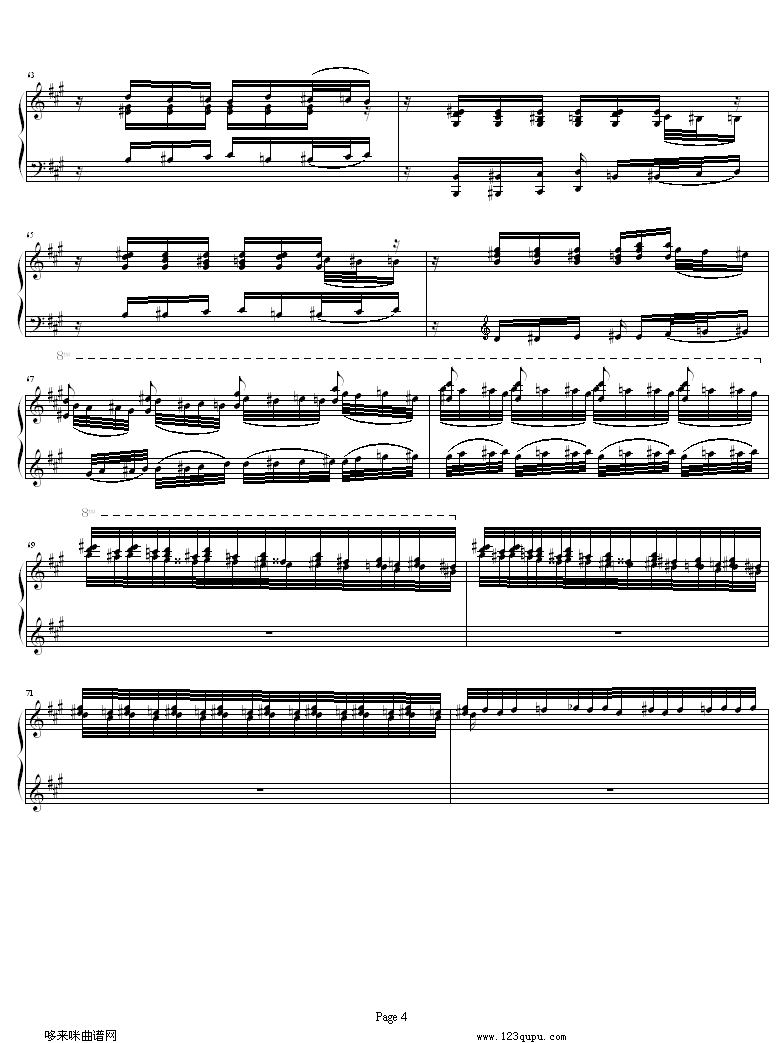 63
65
8va
67
8va
69
71
Page 4
哆来咪曲谱网
www.123qupu.com